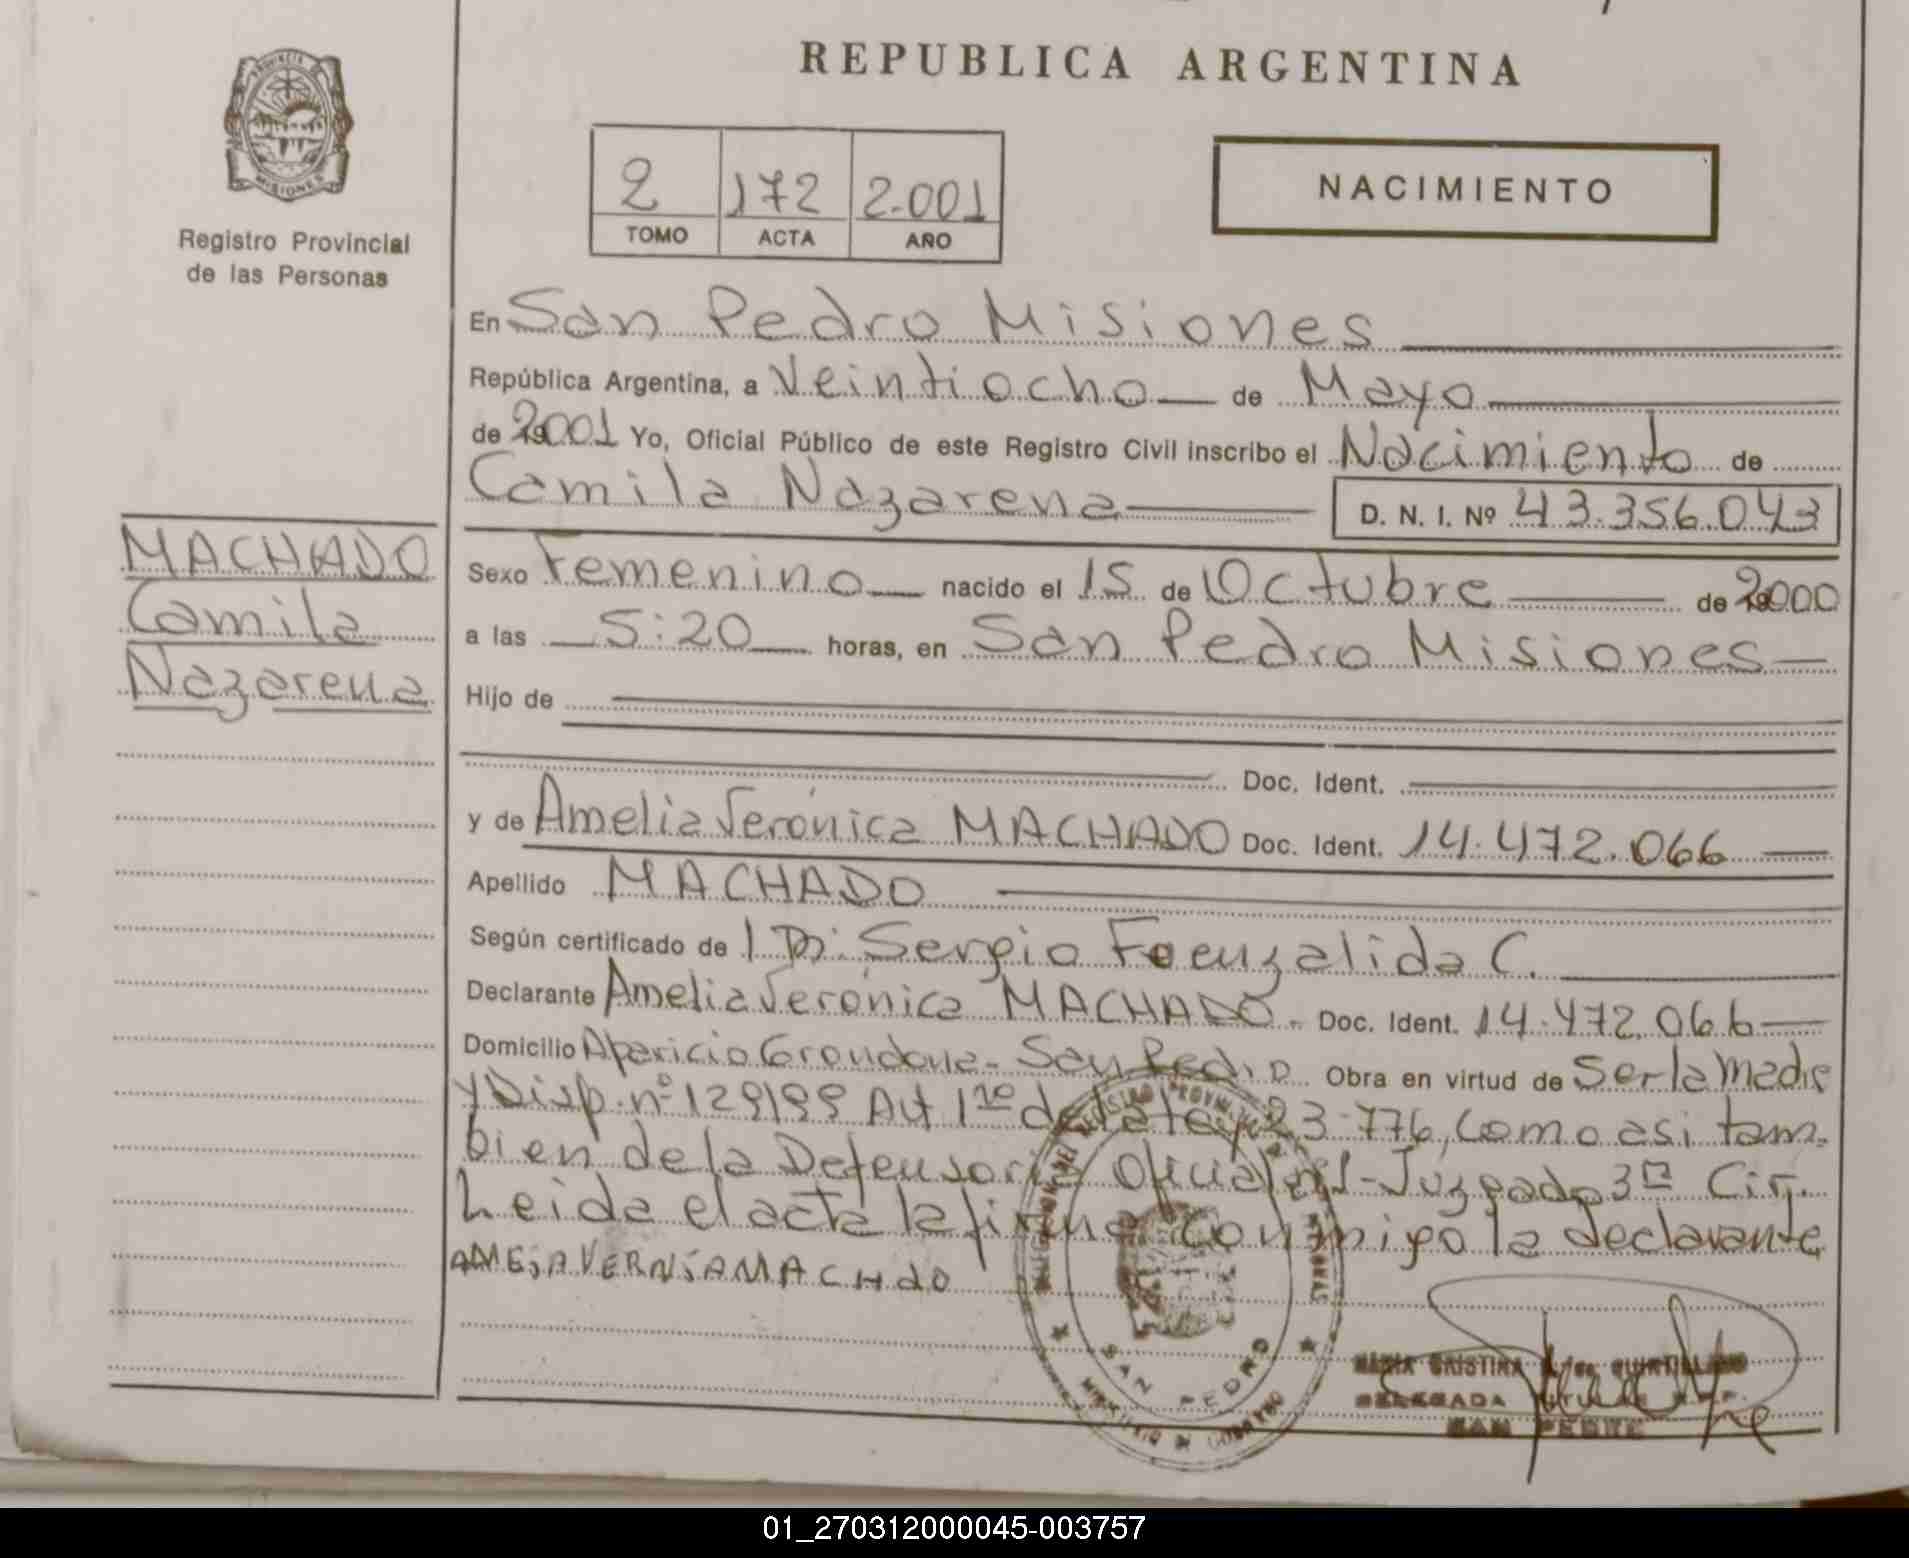 REPUBLICA ARGENTINA
PROVINCIA DE
MISIONES
Registro Provincial
de las Personas
2 172 2.001
TOMO ACTA AÑO
NACIMIENTO
En San Pedro Misiones
República Argentina, a Veintiocho de Mayo
de 2001 Yo, Oficial Público de este Registro Civil inscribo el Nacimiento de
Camila Nazarena D. N. I. Nº 43.356.043
MACHADO
Camila
Nazarena
Sexo Femenino nacido el 15 de Octubre de 2000
a las 5:20 horas, en San Pedro Misiones
Hijo de
Doc. Ident.
y de Amelia Verónica MACHADO Doc. Ident. 14.472.066
Apellido MACHADO
Según certificado de Dr. Sergio Fuenzalida C.
Declarante Amelia Verónica MACHADO. Doc. Ident. 14.472.066
Domicilio Aparicio Grondona - San Pedro Obra en virtud de Ser la Madre
y Disp. nº 129/99 Art 1ro de la ley 23.776, como asi tam-
bien de la Defensoria Oficial del Juzgado 3ra Cir.
Leida el acta la firma conmigo la declarante
AMEJAVERNSAMACHdO
SAN PEDRO
MINISTERIO DE GOBIERNO
DELEGADA
SAN PEDRO
01_270312000045-003757